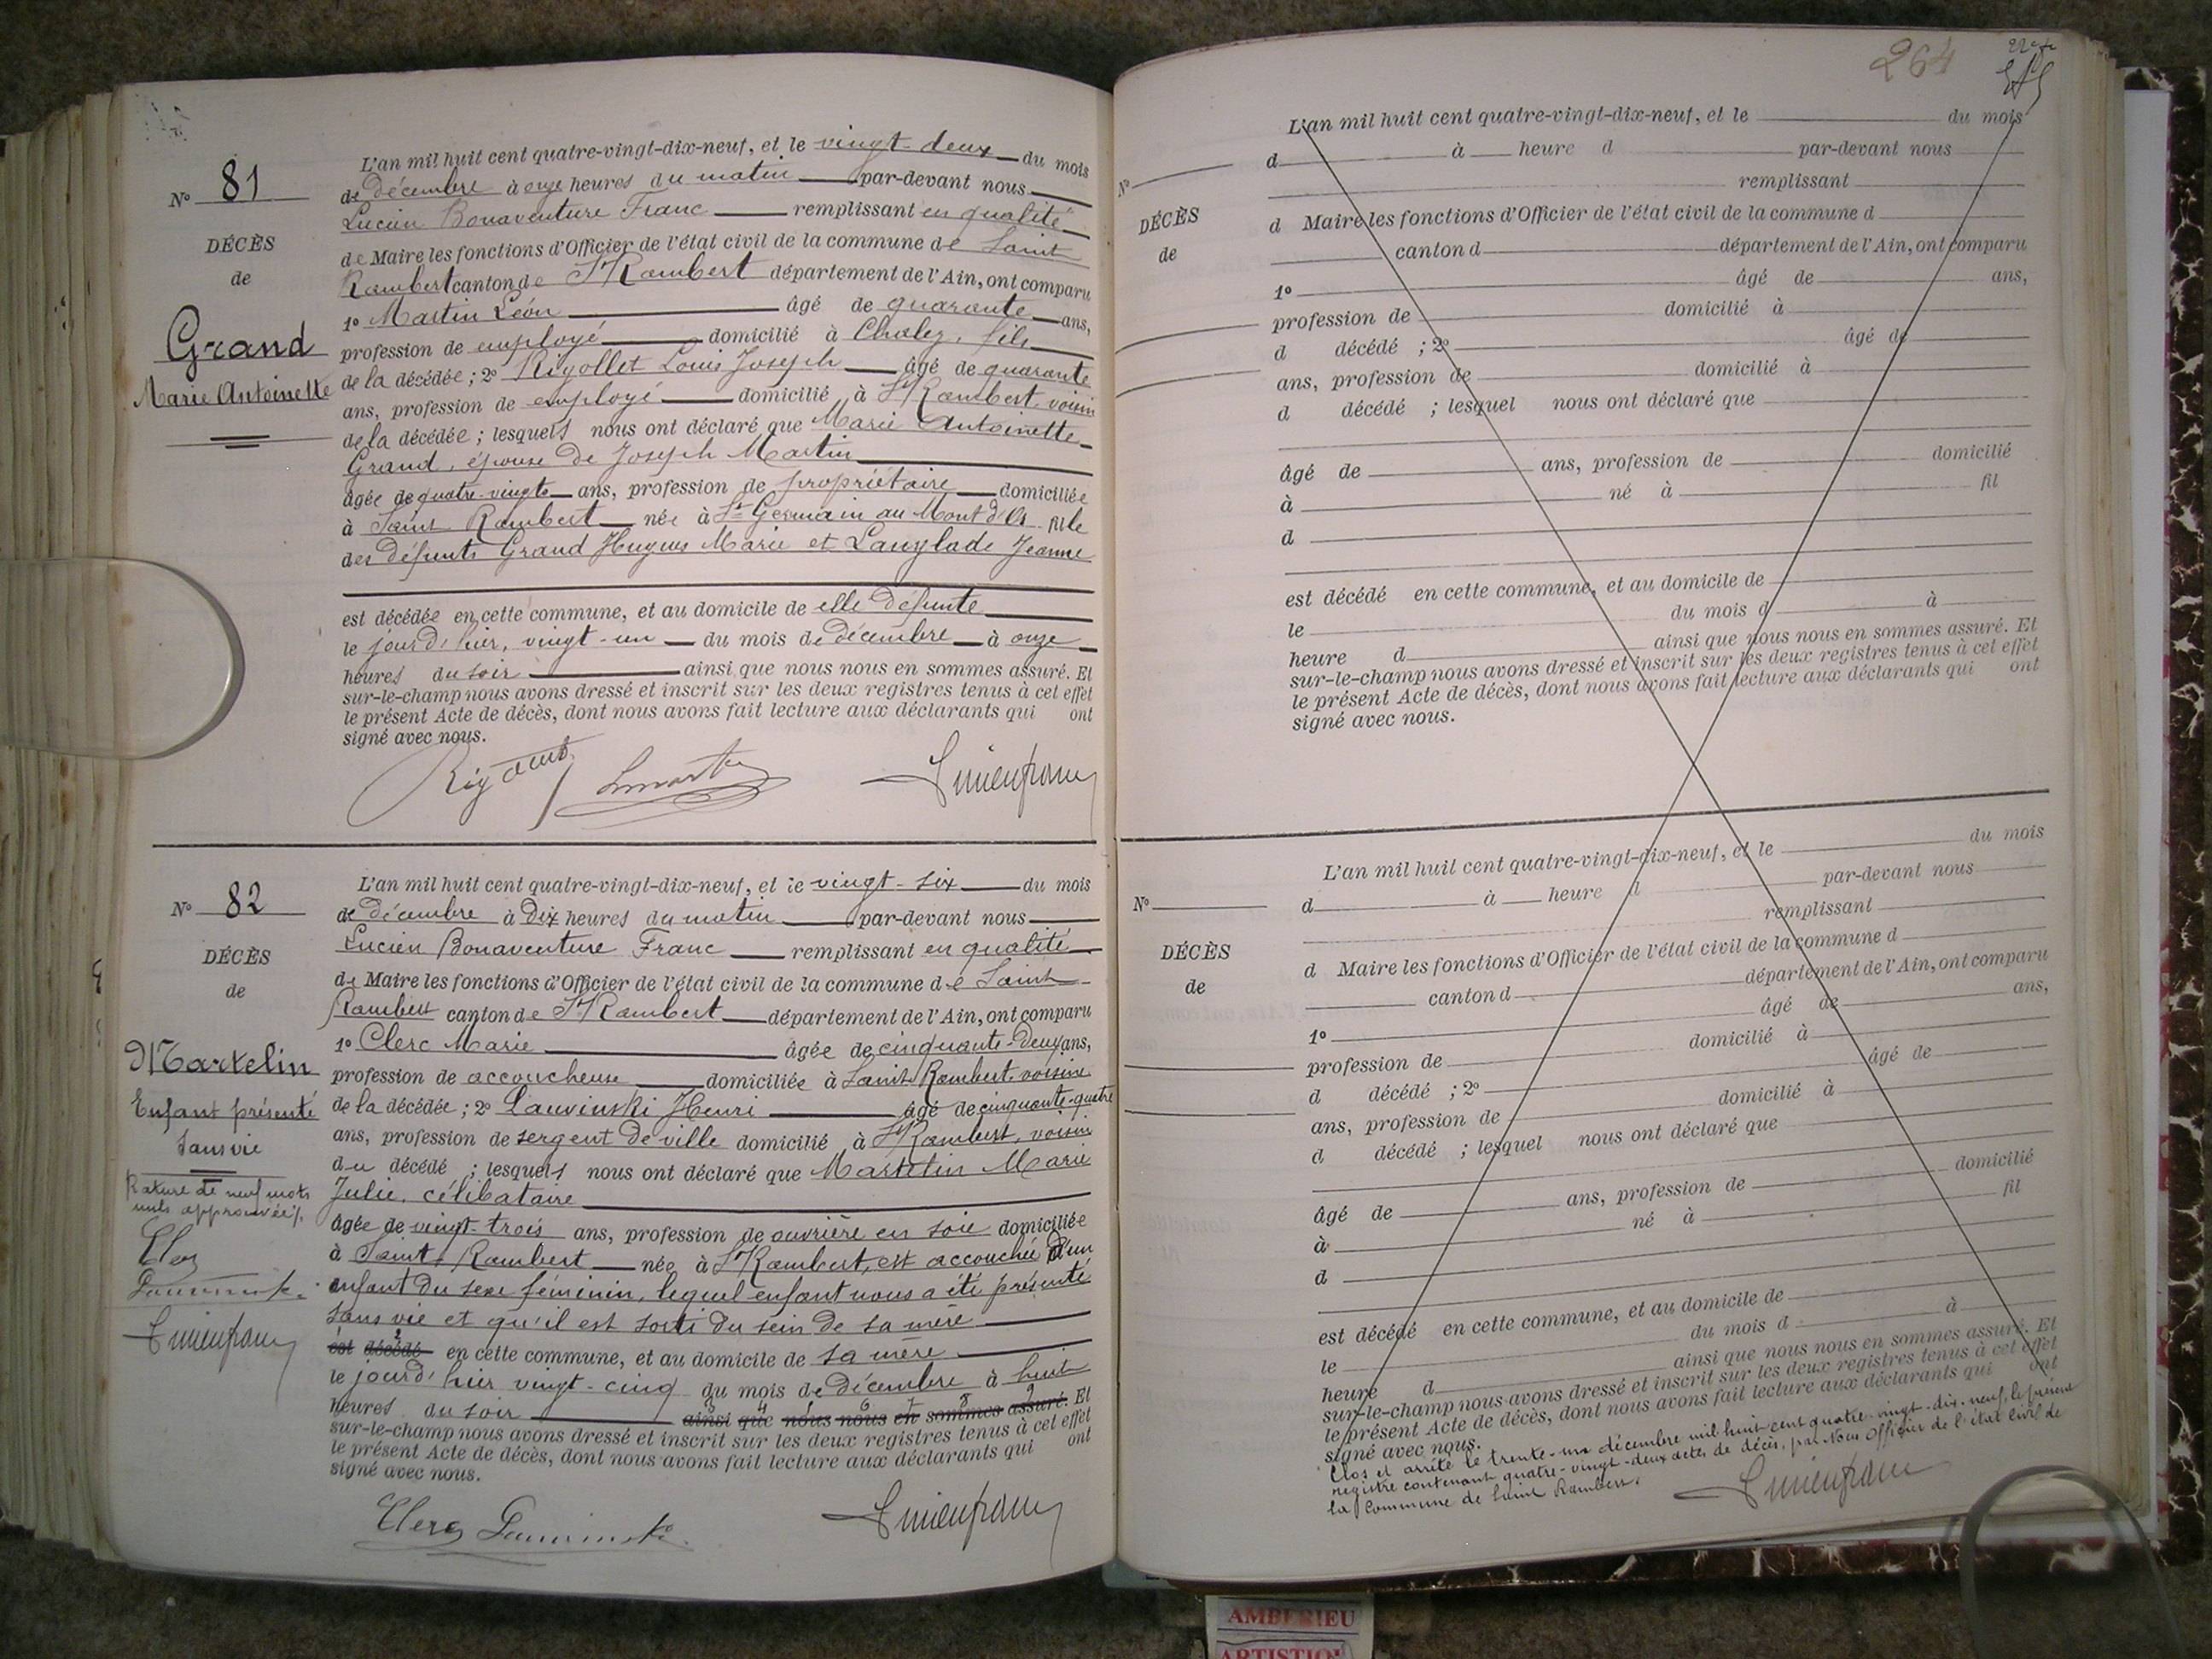 N° 81
DÉCÈS
de
Grand
Marie Antoinette
L'an mil huit cent quatre-vingt-dix-neuf, et le vingt-deux du mois
de décembre à onze heures du matin par-devant nous
Lucien Bonaventure Franc remplissant en qualité
de Maire les fonctions d'Officier de l'état civil de la commune de Saint
Rambert canton de St Rambert département de l'Ain, ont comparu
1° Martin Léon âgé de quarante ans,
profession de employé domicilié à Chaley, fils
de la décédée; 2° Rigollet Louis Joseph âgé de quarante
ans, profession de employé domicilié à St Rambert, voisin
de la décédée; lesquels nous ont déclaré que Marie Antoinette
Grand, épouse de Joseph Martin
âgée de quatre-vingts ans, profession de propriétaire domiciliée
à Saint Rambert née à St Germain au Mont d'Or fille
des défunts Grand Hugues Marie et Langlade Jeanne
est décédée en cette commune, et au domicile de elle défunte
le jour d'hier, vingt-un du mois de décembre à onze
heures du soir ainsi que nous nous en sommes assuré. Et
sur-le-champ nous avons dressé et inscrit sur les deux registres tenus à cet effet
le présent Acte de décès, dont nous avons fait lecture aux déclarants qui ont
signé avec nous.
Lmartin Lucienfranc
N° 82
DÉCÈS
de
Martelin
Enfant présenté
sans vie
Rature de neuf mots
nuls approuvée
Clerc
Lucienfranc
L'an mil huit cent quatre-vingt-dix-neuf, et le vingt-six du mois
de décembre à dix heures du matin par-devant nous
Lucien Bonaventure Franc remplissant en qualité
de Maire les fonctions d'Officier de l'état civil de la commune de Saint
Rambert canton de St Rambert département de l'Ain, ont comparu
1° Clerc Marie âgée de cinquante-deux ans,
profession de accoucheuse domiciliée à Saint Rambert, voisine
de la décédée; 2° Lauvinski Henri âgé de cinquante-quatre
ans, profession de sergent de ville domicilié à St Rambert, voisin
du décédé; lesquels nous ont déclaré que Martelin Marie
Julie, célibataire
âgée de vingt-trois ans, profession de ouvrière en soie domiciliée
à Saint Rambert née à St Rambert, est accouchée d'un
enfant du sexe féminin, lequel enfant nous a été présenté
sans vie et qu'il est sorti du sein de sa mère
est décédé en cette commune, et au domicile de sa mère
le jour d'hier vingt-cinq du mois de décembre à huit
heures du soir ainsi que nous nous en sommes assuré. Et
sur-le-champ nous avons dressé et inscrit sur les deux registres tenus à cet effet
le présent Acte de décès, dont nous avons fait lecture aux déclarants qui ont
signé avec nous.
Clerc Lauvinski Lucienfranc
264
N°
DÉCÈS
de
L'an mil huit cent quatre-vingt-dix-neuf, et le du mois
d à heure d par-devant nous
remplissant
d Maire les fonctions d'Officier de l'état civil de la commune d
canton d département de l'Ain, ont comparu
1° âgé de ans,
profession de domicilié à
d décédé ; 2° âgé de
ans, profession de domicilié à
d décédé ; lesquel nous ont déclaré que
âgé de ans, profession de domicilié
à né à fil
d
est décédé en cette commune, et au domicile de
le du mois d à
heure d ainsi que nous nous en sommes assuré. Et
sur-le-champ nous avons dressé et inscrit sur les deux registres tenus à cet effet
le présent Acte de décès, dont nous avons fait lecture aux déclarants qui ont
signé avec nous.
N°
DÉCÈS
de
L'an mil huit cent quatre-vingt-dix-neuf, et le du mois
d à heure d par-devant nous
remplissant
d Maire les fonctions d'Officier de l'état civil de la commune d
canton d département de l'Ain, ont comparu
1° âgé de ans,
profession de domicilié à
d décédé ; 2° âgé de
ans, profession de domicilié à
d décédé ; lesquel nous ont déclaré que
âgé de ans, profession de domicilié
à né à fil
d
est décédé en cette commune, et au domicile de
le du mois d à
heure d ainsi que nous nous en sommes assuré. Et
sur-le-champ nous avons dressé et inscrit sur les deux registres tenus à cet effet
le présent Acte de décès, dont nous avons fait lecture aux déclarants qui ont
signé avec nous.
Clos et arrêté le trente-un décembre mil huit cent quatre-vingt-dix-neuf, le présent
registre contenant quatre-vingt-deux actes de décès, par Nous Officier de l'état civil de
la Commune de Saint Rambert.
Lucienfranc
AMBERIEU